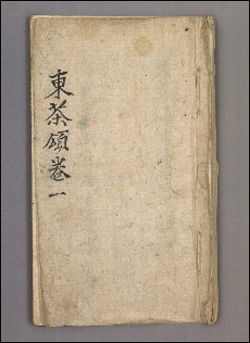 東茶頌卷一